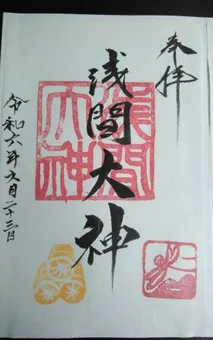 奉拝
浅間大神
令和六年六月二十三日